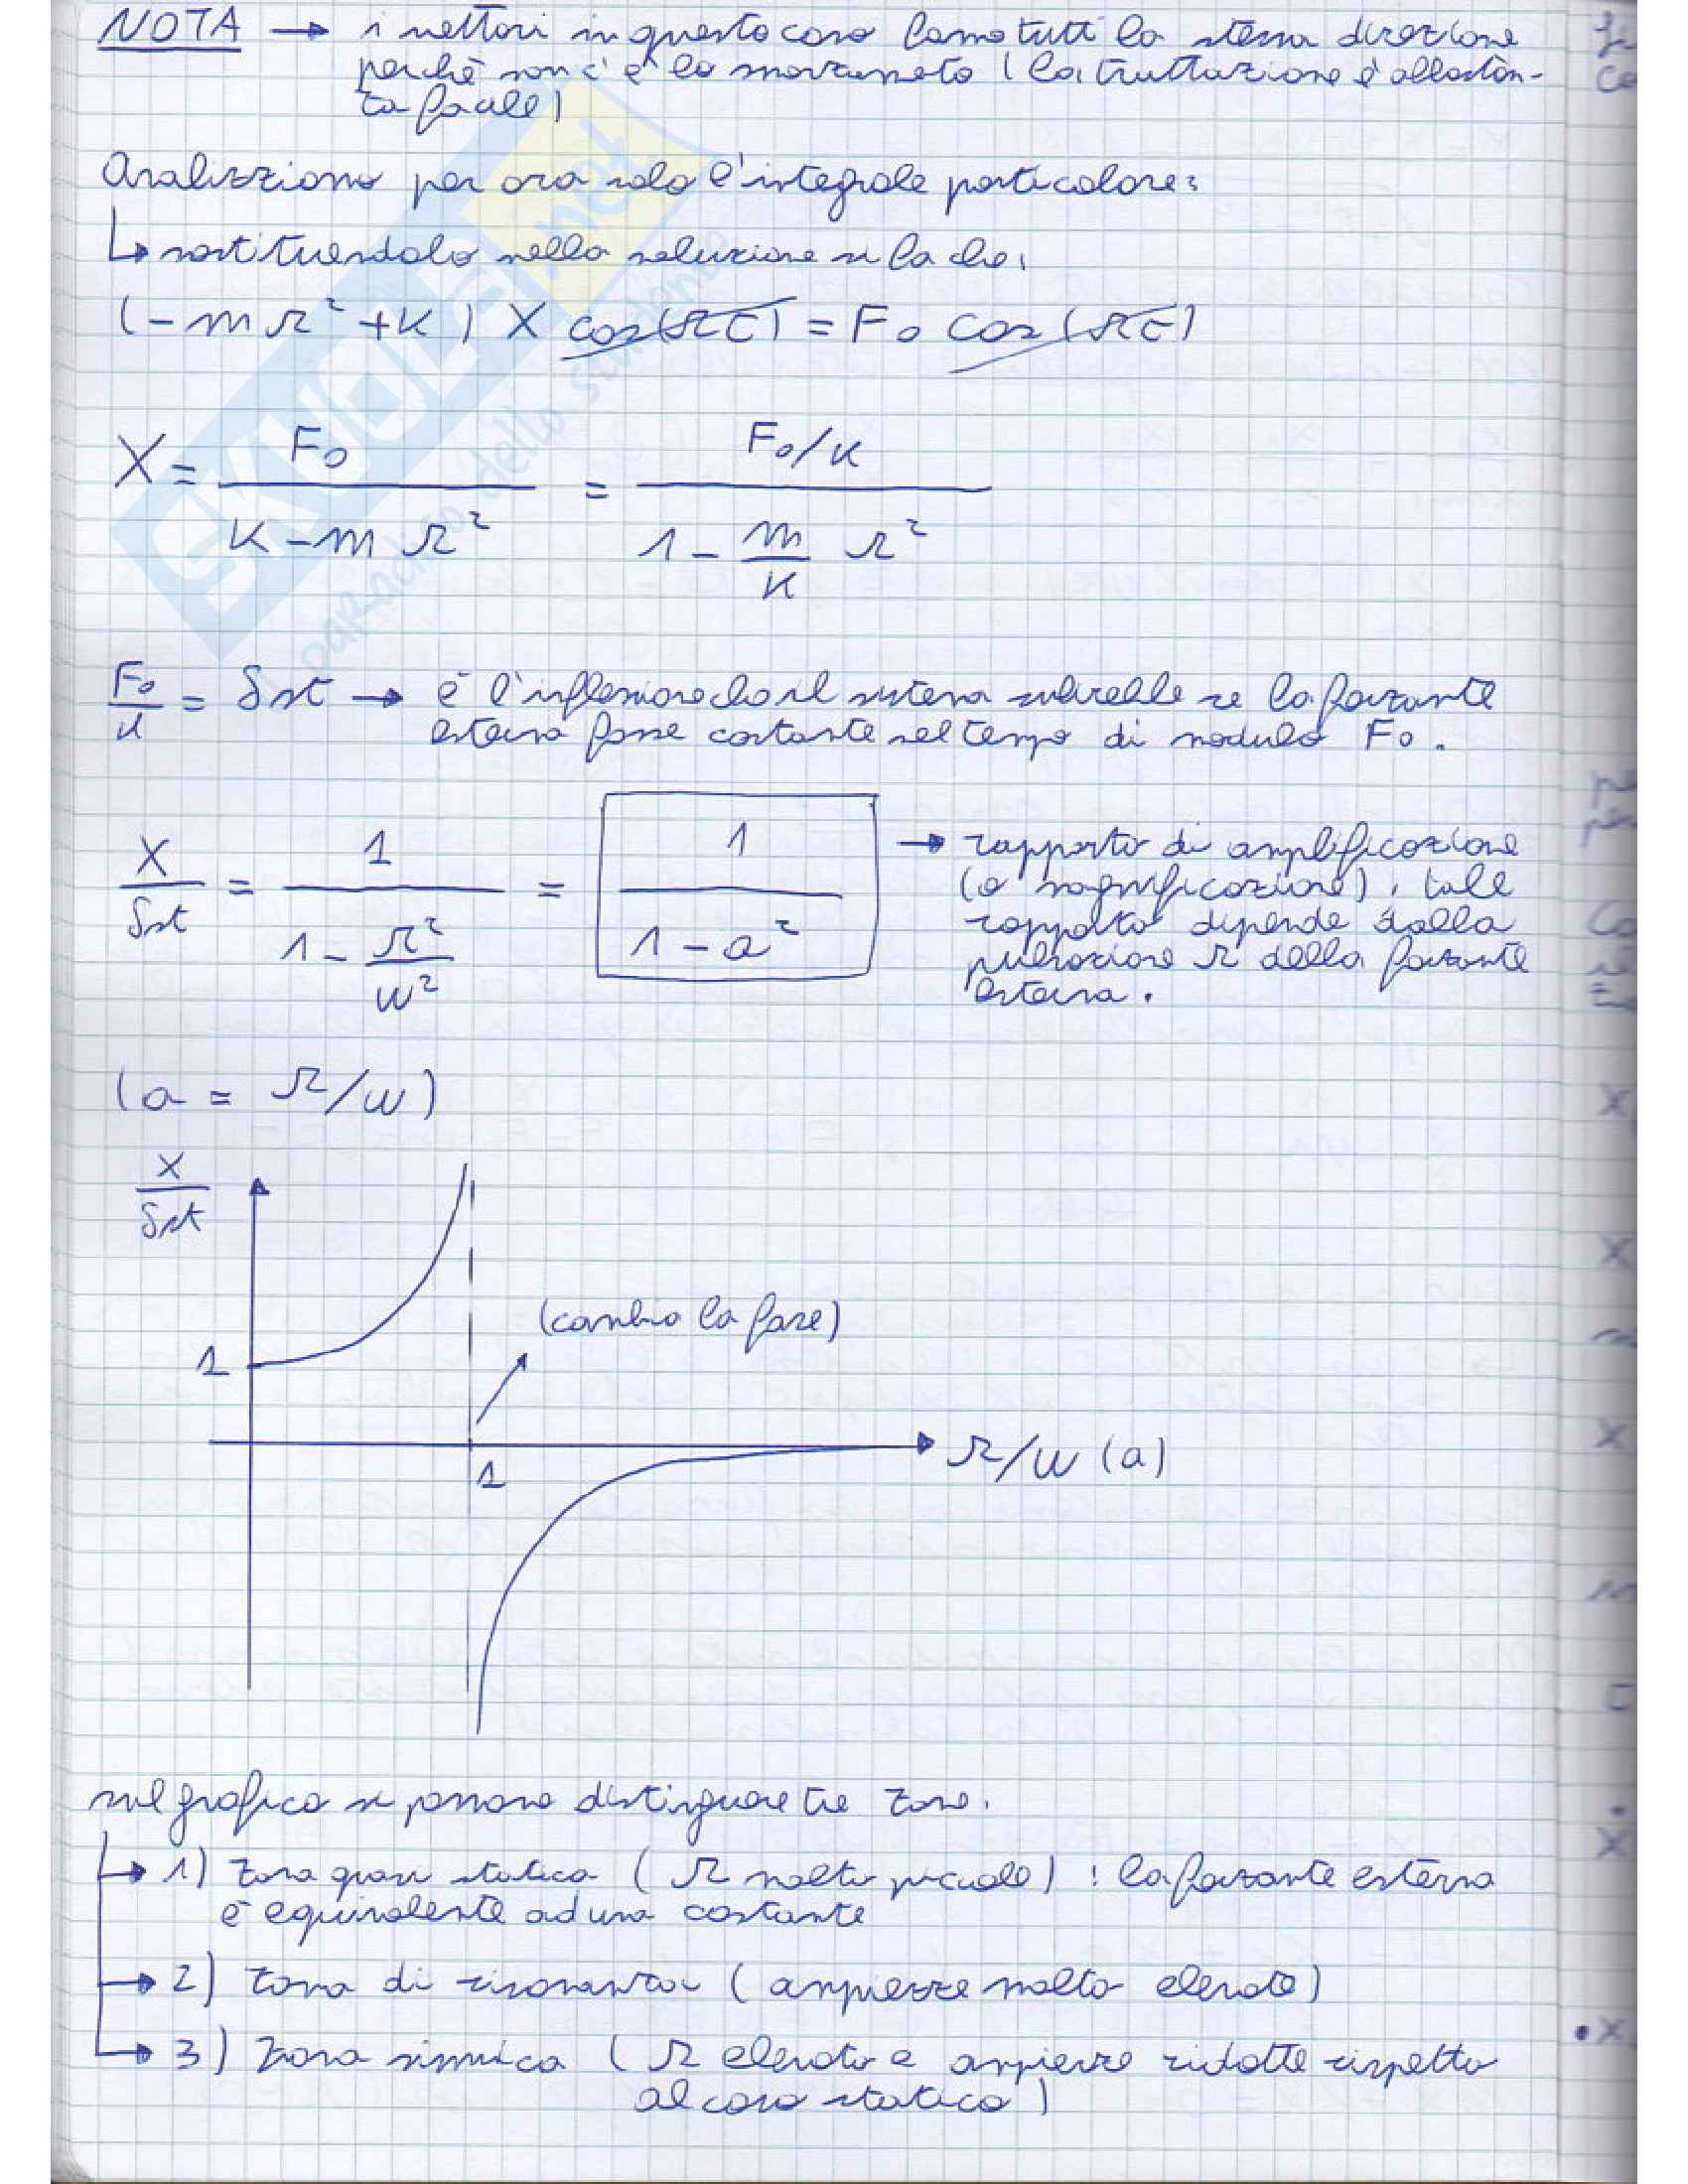 NOTA → i vettori in questo caso hanno tutti la stessa direzione
perchè non c'è lo smorzamento (la trattazione è abbastan-
za facile)
Analizziamo per ora solo l'integrale particolare:
↳ sostituendolo nella soluzione si ha che:
(-mΩ²+K) X cos(Ωt) = F₀ cos(Ωt)
X = F₀ / (K-mΩ²) = (F₀/K) / (1 - (m/K) Ω²)
F₀/K = δst → è l'inflessione che il sistema subirebbe se la forzante
esterna fosse costante nel tempo di modulo F₀.
X/δst = 1 / (1 - Ω²/ω²) = 1 / (1-a²) → rapporto di amplificazione
(o magnificazione), tale
rapporto dipende dalla
pulsazione Ω della forzante
esterna.
(a = Ω/ω)
X/δst
(cambio la fase)
1
1
Ω/ω (a)
sul grafico si possono distinguere tre zone.
↳ 1) zona quasi statica (Ω molto piccolo) : la forzante esterna
è equivalente ad una costante
→ 2) zona di risonanza (ampiezze molto elevate)
→ 3) zona sismica (Ω elevato e ampiezze ridotte rispetto
al caso statico)
SKUOLA.net
paradiso dello studente